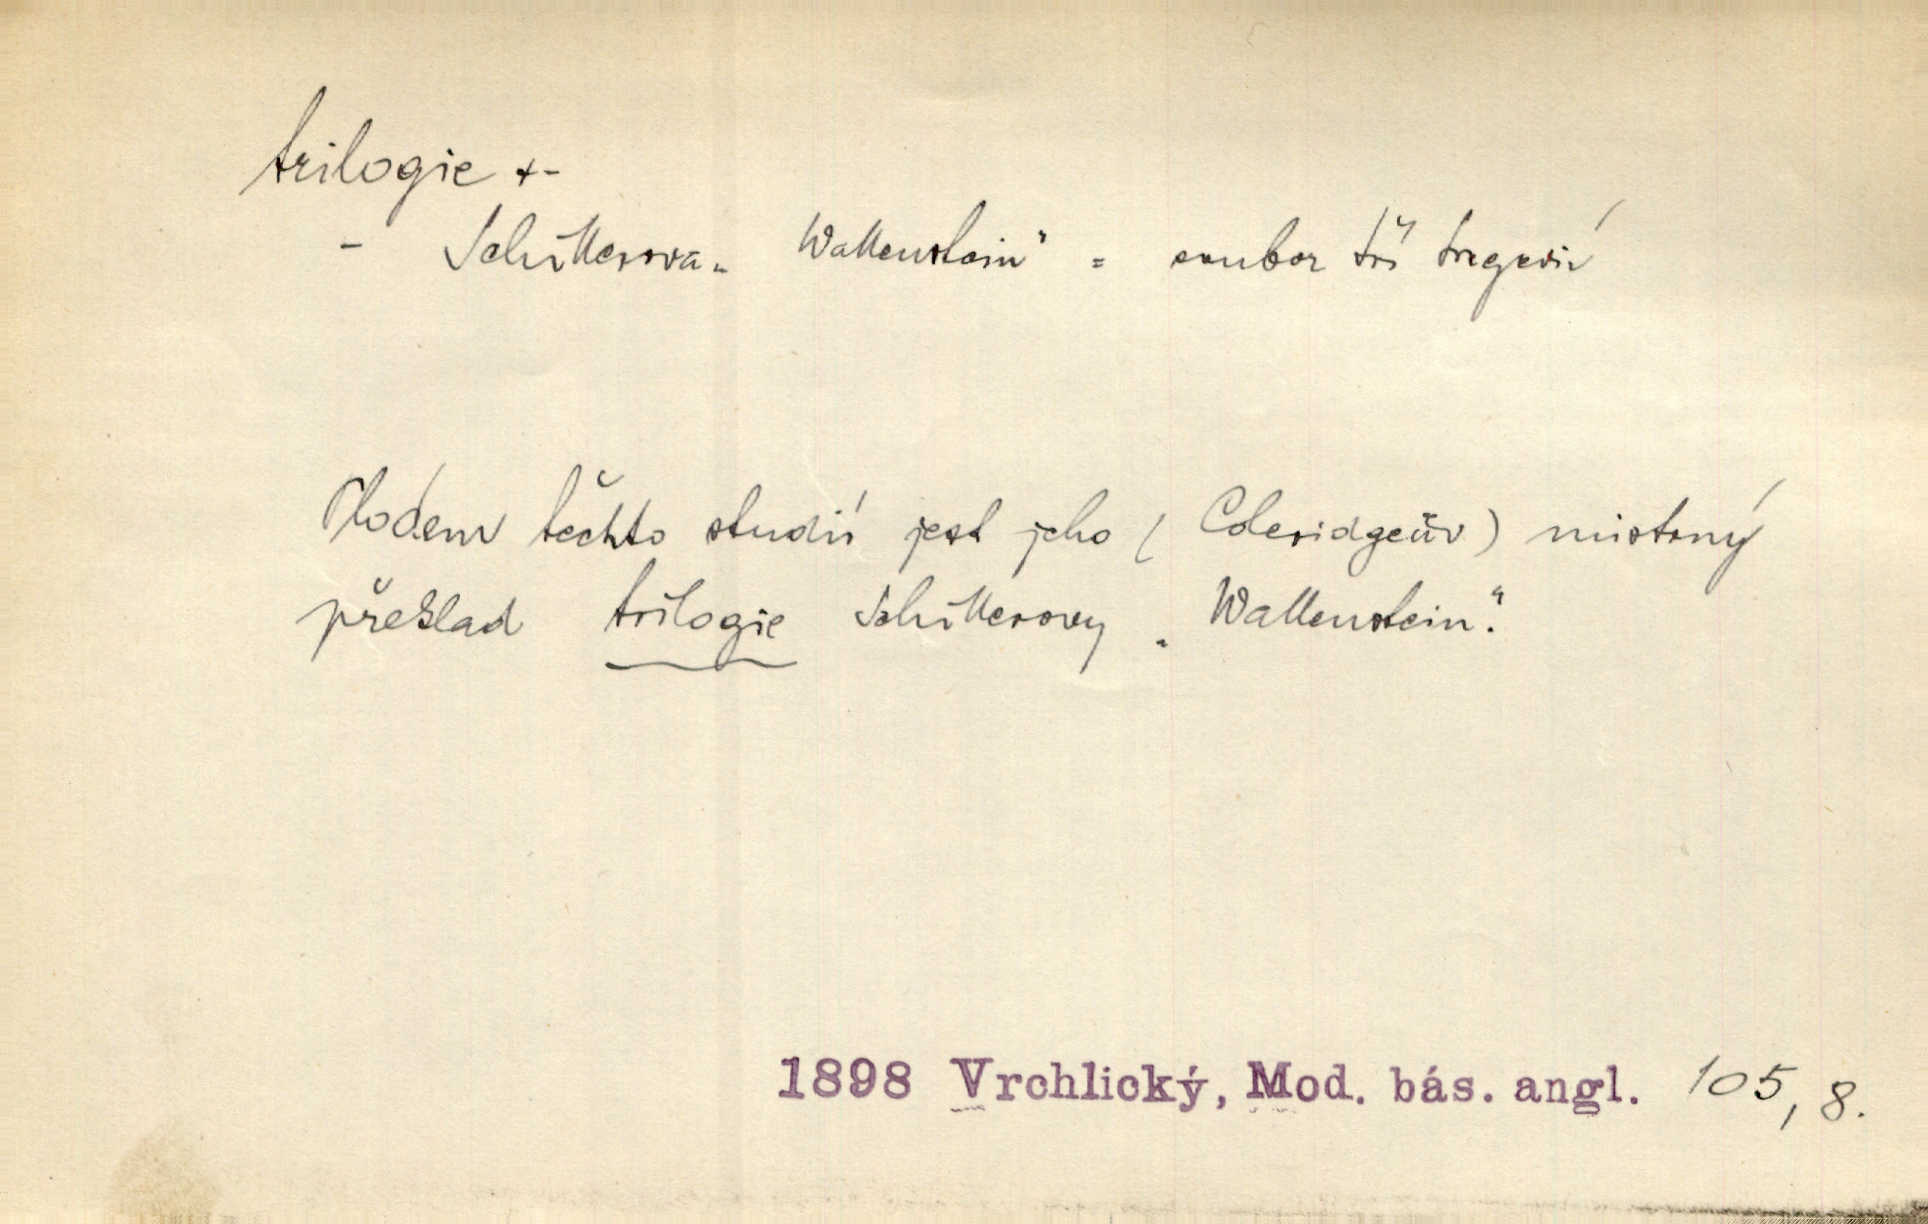 trilogie +-
- Schillerova „Wallenstein“ = soubor tří tragedií
Plodem těchto studií jest jeho (Coleridgeův) mistrný
překlad trilogie Schillerovy „Wallenstein“.
1898 Vrchlický, Mod. bás. angl. 105, 8.